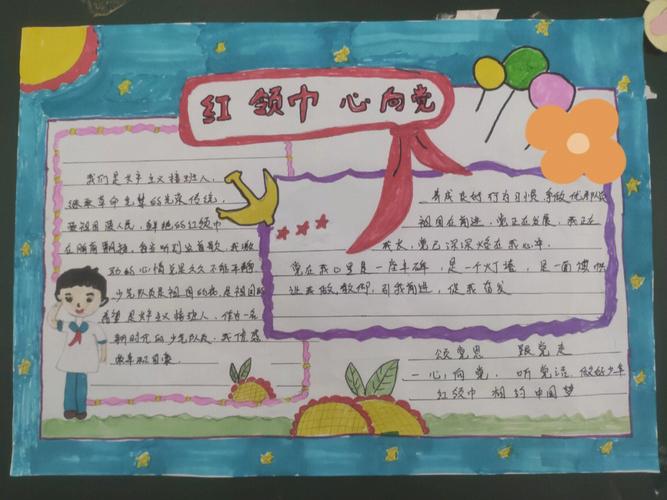 红领巾 心向党
我们是共产主义接班人,
继承革命先辈的光荣传统,
爱祖国爱人民,鲜艳的红领巾
在胸前飘扬,每当听到这首歌,我激
动的心情总是久久不能平静
少先队员是祖国的花,是祖国的
希望是共产主义接班人,作为一名
新时代的少先队员,我倍感
荣幸和自豪
养成良好行为习惯,争做优秀队员
祖国在前进,党正在发展,我正在
成长,党已深深烙在我心中
党在我心里是一座丰碑,是一个灯塔,是一面旗帜
让我敬仰,引我前进,促我奋发
颂党恩 跟党走
一心向党,听党话 做好少年
红领巾 相约中国梦